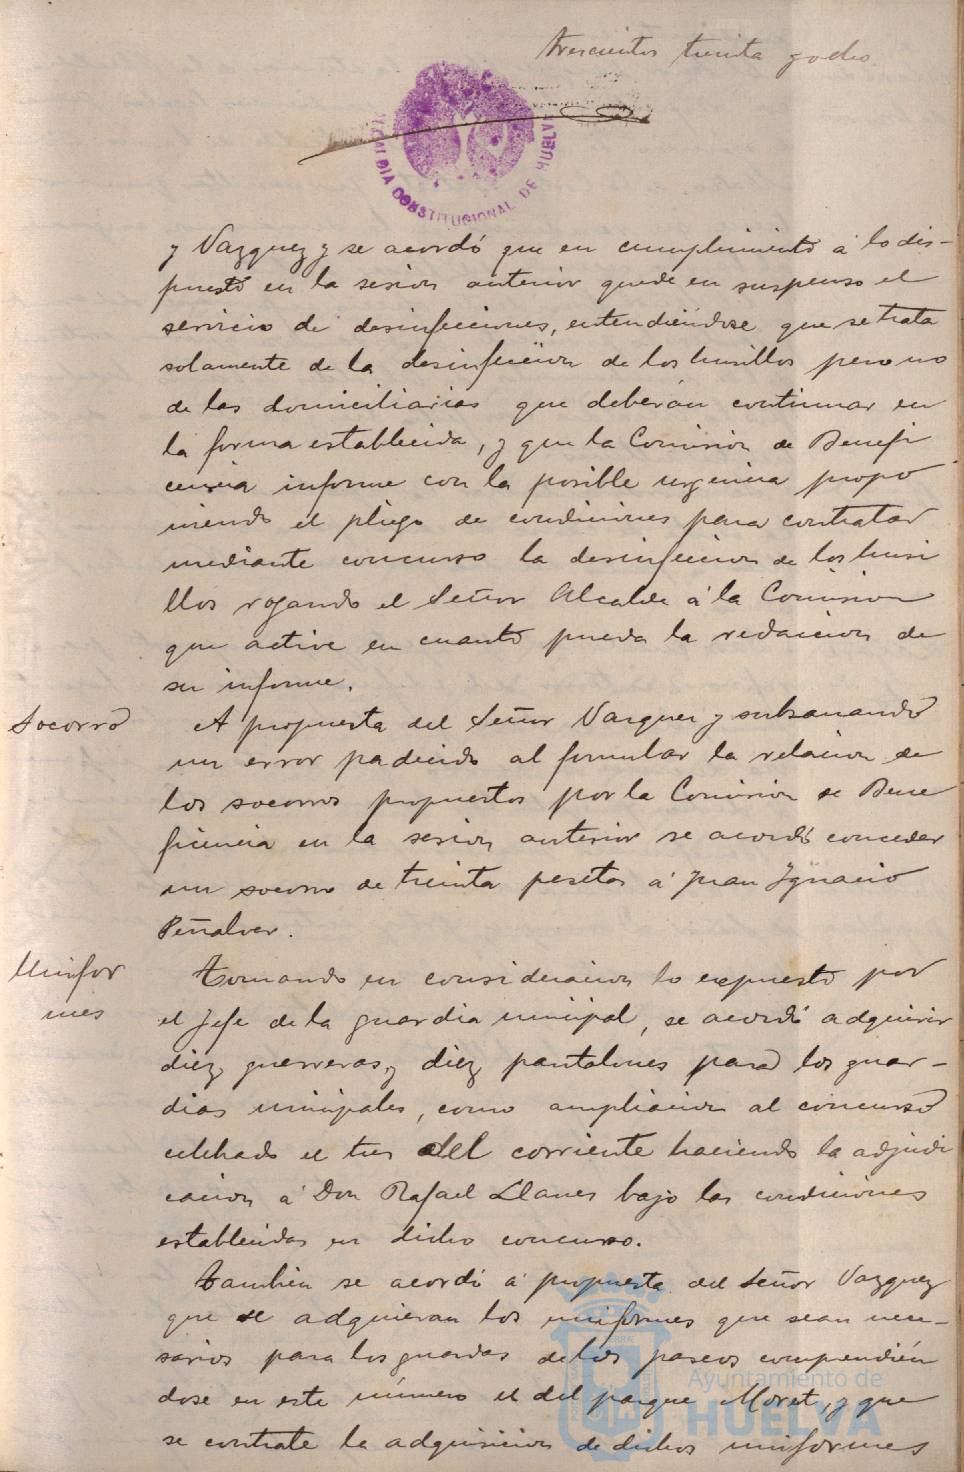 trescientos treinta y dos
ALCALDIA CONSTITUCIONAL DE HUELVA
y Vazquez y se acordó que en cumplimiento á lo dis-
puesto en la sesion anterior quede en suspenso el
servicio de desinfecciones, entendiéndose que se trata
solamente de la desinfeccion de los husillos pero no
de las domiciliarias que deberán continuar en
la forma establecida, y que la Comision de Benefi
cencia informe con la posible urgencia propo
niendo el pliego de condiciones para contratar
mediante concurso la desinfeccion de los husi
llos rogando el Señor Alcalde á la Comision
que active en cuanto pueda la redaccion de
su informe.
Socorro
A propuesta del Señor Vazquez y subsanando
un error padecido al formular la relacion de
los socorros propuestos por la Comision de Bene
ficencia en la sesion anterior se acordó conceder
un socorro de treinta pesetas á Juan Ignacio
Peñalver.
Unifor
mes
Tomando en consideracion lo expuesto por
el Jefe de la guardia minicipal, se acordó adquirir
diez guerreras y diez pantalones para los guar-
dias minicipales, como ampliacion al concurso
celebrado el tres del corriente haciendo la adjudi
cacion á Don Rafael Llanes bajo las condiciones
establecidas en dicho concurso.
Tambien se acordó á propuesta del Señor Vazquez
que se adquieran los uniformes que sean nece-
sarios para los guardas de los paseos comprendién
dose en este número el del parque Moret, y que
se contrate la adquisicion de dichos uniformes
Ayuntamiento de
HUELVA